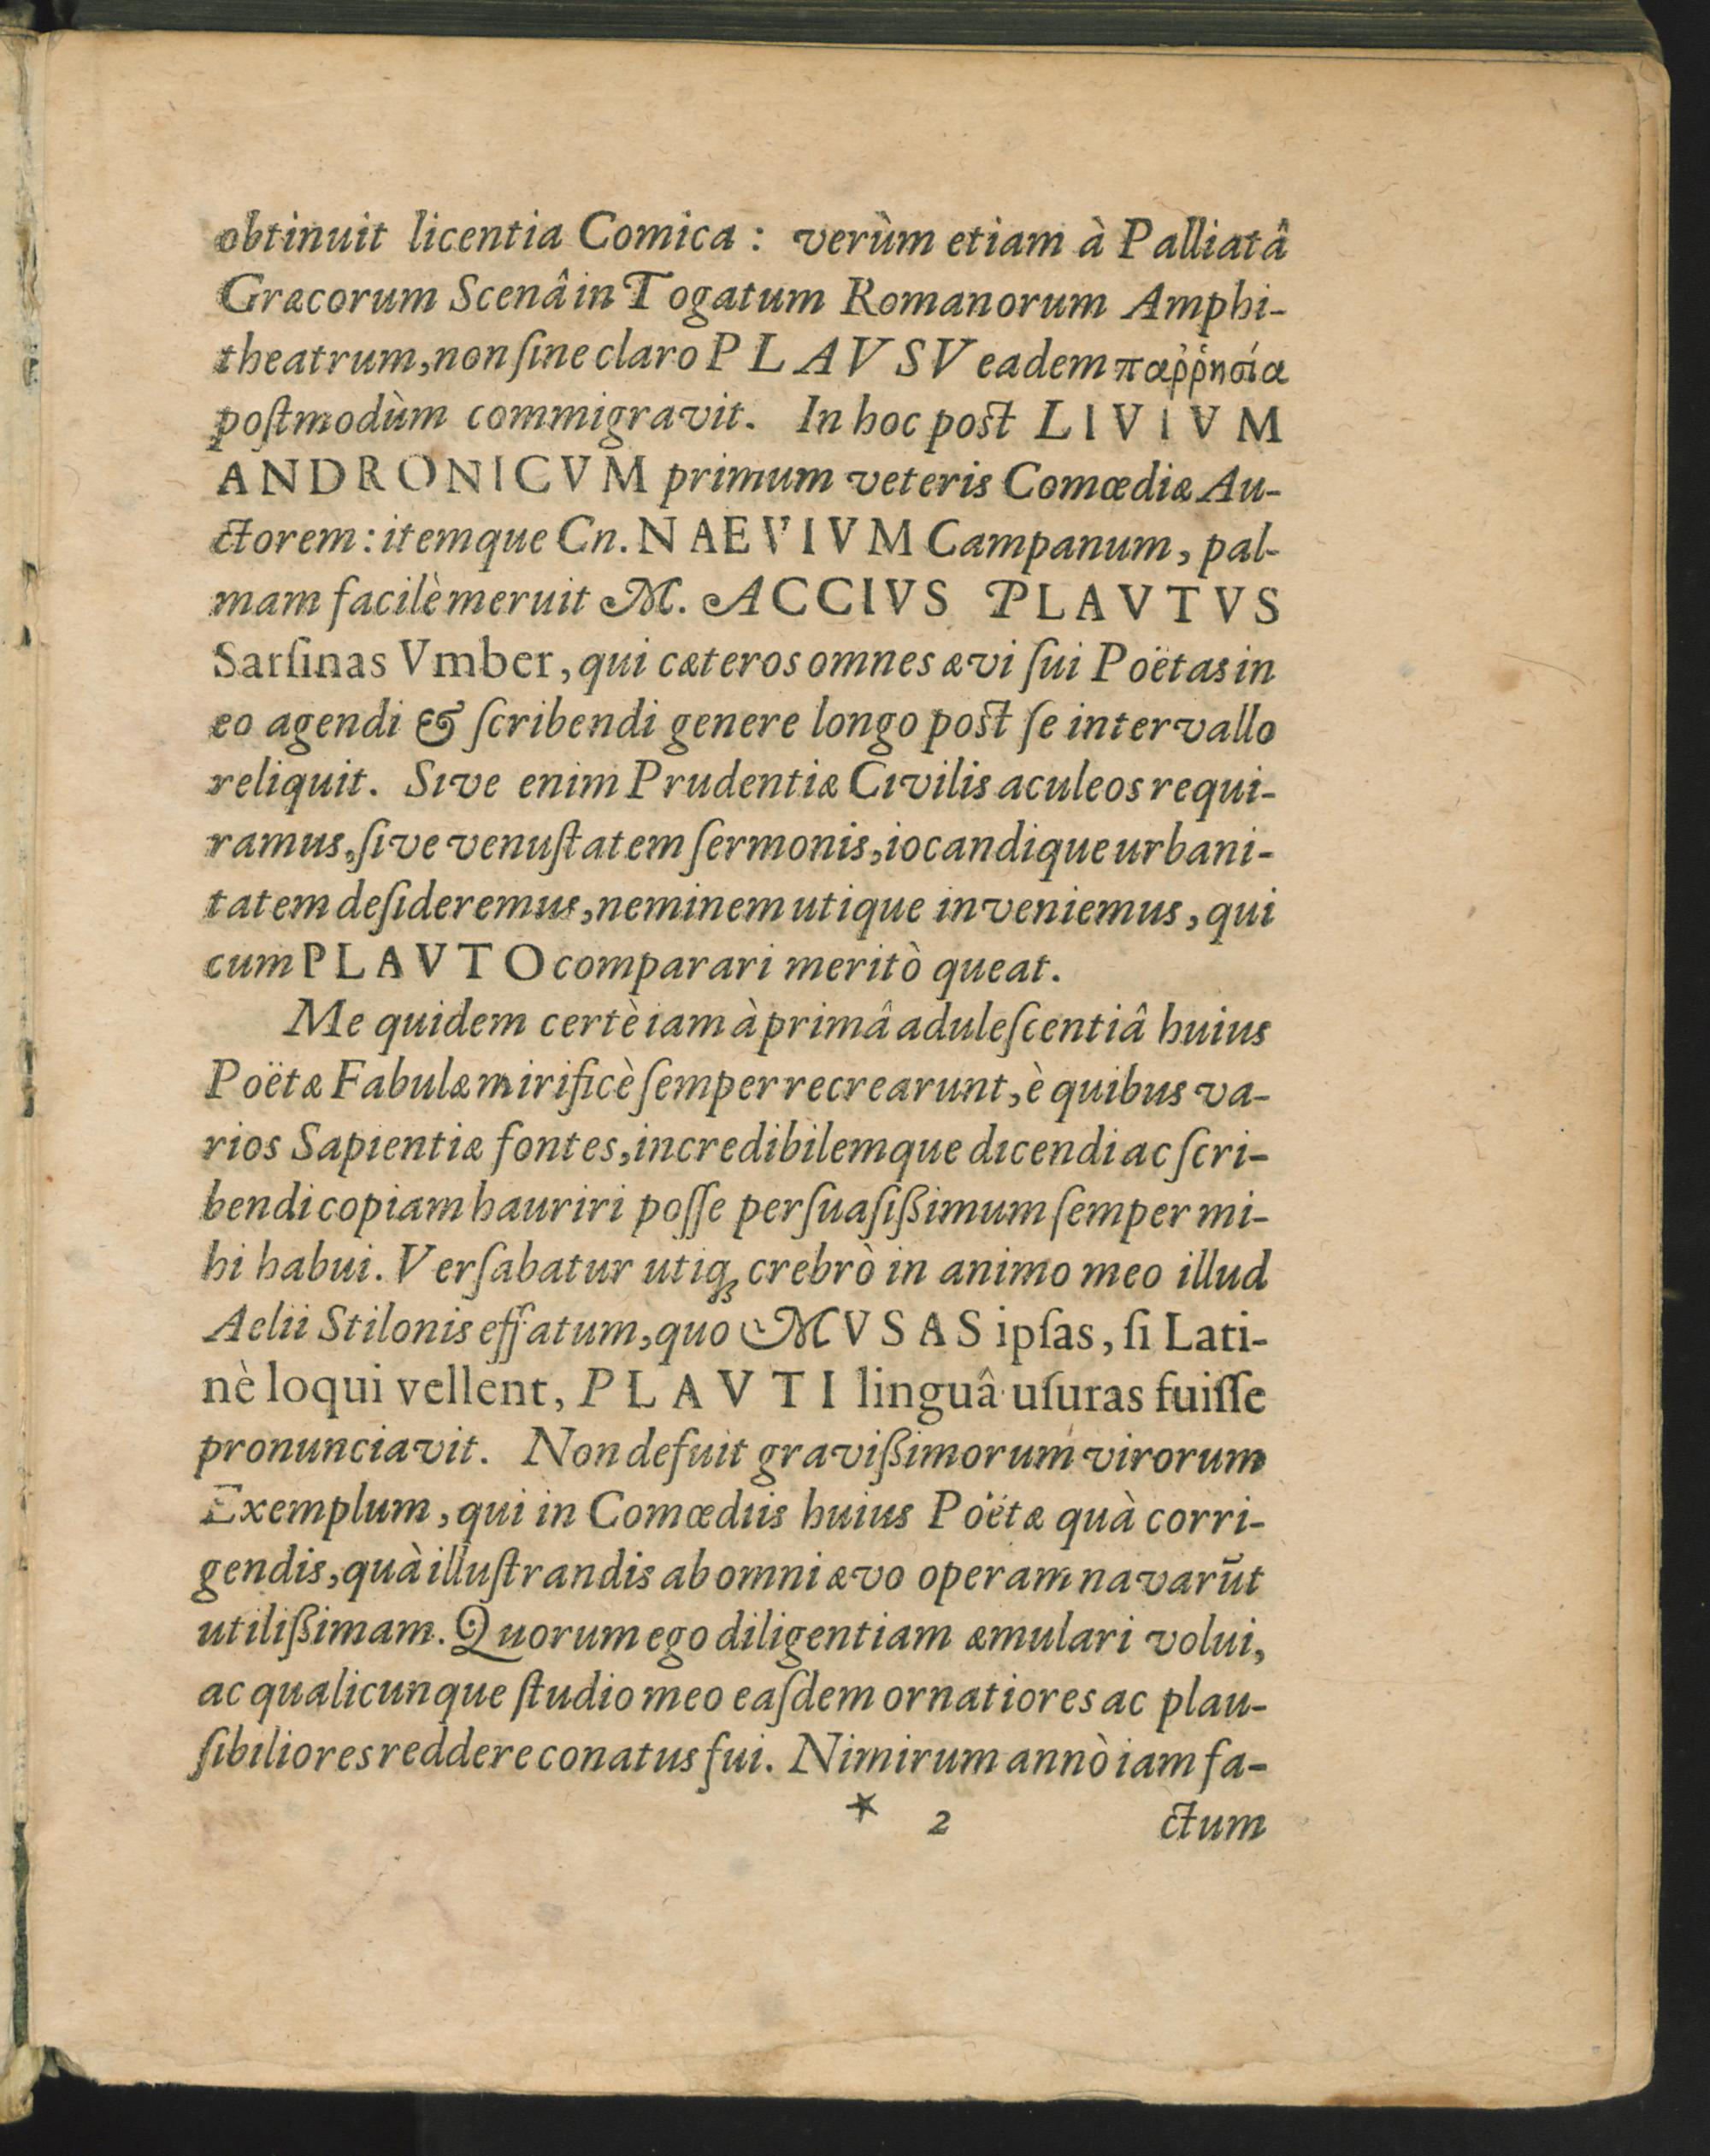 obtinuit licentia Comica: verùm etiam à Palliatâ
Græcorum Scenâ in Togatum Romanorum Amphi-
theatrum, non ſine claro PLAVSV eadem παῤῥησία
poſtmodùm commigravit. In hoc poſt LIVIVM
ANDRONICVM primum veteris Comœdiæ Au-
ctorem: itemque Cn. NAEVIVM Campanum, pal-
mam facilè meruit M. ACCIVS PLAVTVS
Sarſinas Vmber, qui cæteros omnes ævi ſui Poëtas in
eo agendi & ſcribendi genere longo poſt ſe intervallo
reliquit. Sive enim Prudentiæ Civilis aculeos requi-
ramus, ſive venuſtatem ſermonis, iocandique urbani-
tatem deſideremus, neminem utique inveniemus, qui
cum PLAVTO comparari meritò queat.
Me quidem certè iam à primâ aduleſcentiâ huius
Poëtæ Fabulæ mirificè ſemper recrearunt, è quibus va-
rios Sapientiæ fontes, incredibilemque dicendi ac ſcri-
bendi copiam hauriri poſſe perſuaſißimum ſemper mi-
hi habui. Verſabatur utiq; crebrò in animo meo illud
Aelii Stilonis effatum, quo MVSAS ipſas, ſi Lati-
nè loqui vellent, PLAVTI linguâ uſuras fuiſſe
pronunciavit. Non defuit gravißimorum virorum
Exemplum, qui in Comœdiis huius Poëtæ quà corri-
gendis, quà illuſtrandis ab omni ævo operam navarūt
utilißimam. Quorum ego diligentiam æmulari volui,
ac qualicunque ſtudio meo eaſdem ornatiores ac plau-
ſibiliores reddere conatus fui. Nimirum annò iam fa-
* 2 ctum